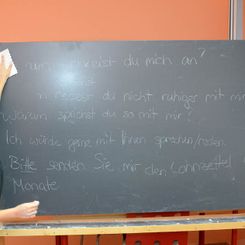 schreist du mich an?
du nicht ruhiger mit mir
Warum sprichst du so mit mir?
Ich würde gerne mit Ihnen sprechen/reden.
Bitte senden Sie mir den Lohnzettel
Monate